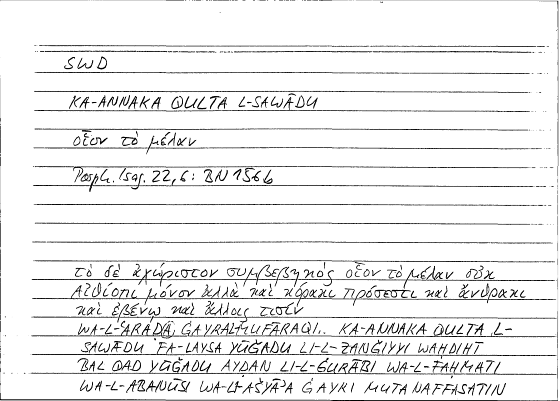 SWD
KA-ANNAKA QULTA L-SAWĀDU
οἷον τὸ μέλαν
Porph. Isag. 22,6: BN 156b
τὸ δὲ ἀχώριστον συμβεβηκός οἷον τὸ μέλαν οὐκ
Αἰθίοπι μόνον ἀλλὰ καὶ κόρακι πρόσεστι καὶ ἄνθρακι
καὶ ἐβένῳ καὶ ἄλλοις τισίν
WA-L-ʿARAḌA ĠAYRA L-MUFĀRAQI.. KA-ANNAKA QULTA L-
SAWĀDU FA-LAYSA YŪĞADU LI-L-ZANĞIYYI WAḤDIHI
BAL QAD YŪĞADU AYḌAN LI-L-ĠURĀBI WA-L-FAḤMATI
WA-L-ABANŪSI WA-L-AŠYĀʾA ĠAYRI MUTANAFFASATIN